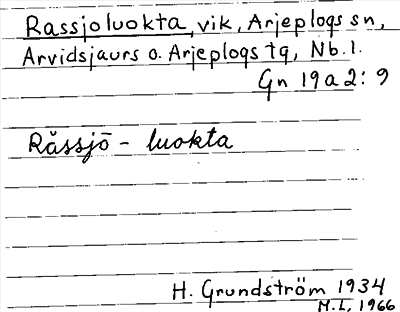 Rassjoluokta, vik, Arjeplogs sn,
Arvidsjaurs o. Arjeplogs tg, Nb. l.
Gn 19 a 2: 9
Råssjō - luokta
H. Grundström 1934
M.L. 1966